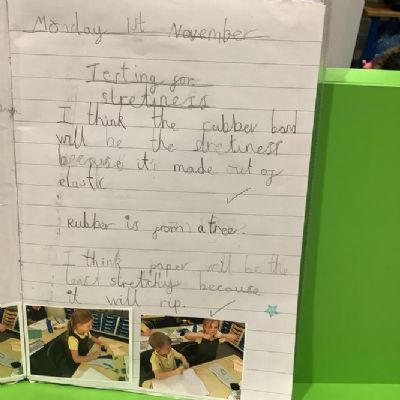 Monday 1st November
Testing for
stretyness
I think the rubber band
will be the stretiness
because it's made out of
elastic
Rubber is from a tree.
I think paper will be the
less stretchy because
it will rip.